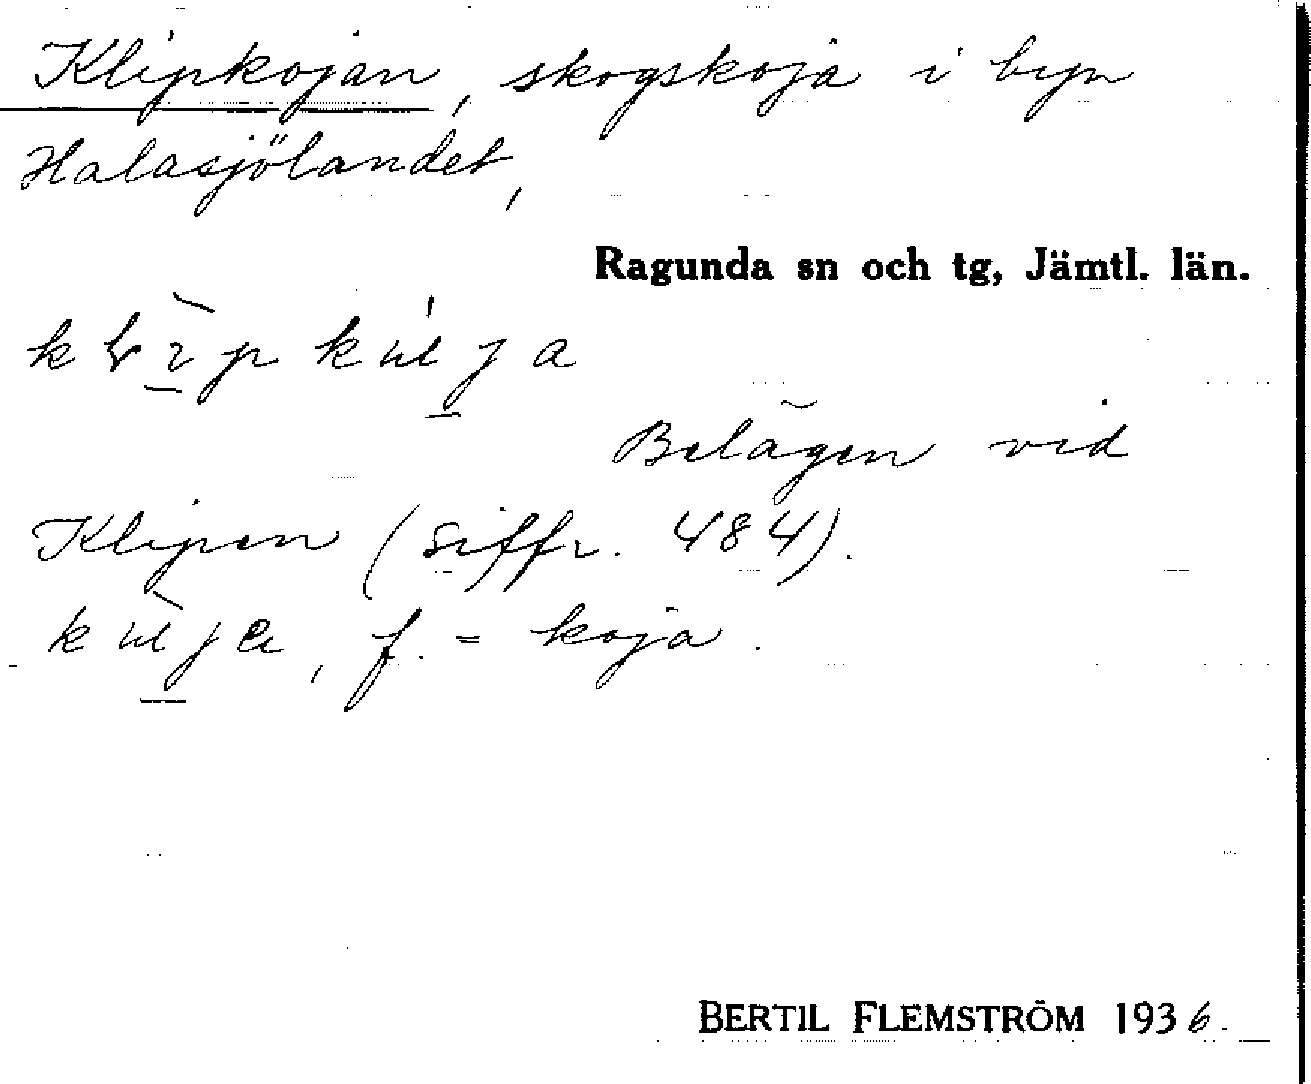 Klipkojan, skogskoja i byn
Halasjölandet,
Ragunda sn och tg, Jämtl. län.
Belägen vid
Klipen (siffr. 484).
f. = koja.
BERTIL FLEMSTRÖM 1936.